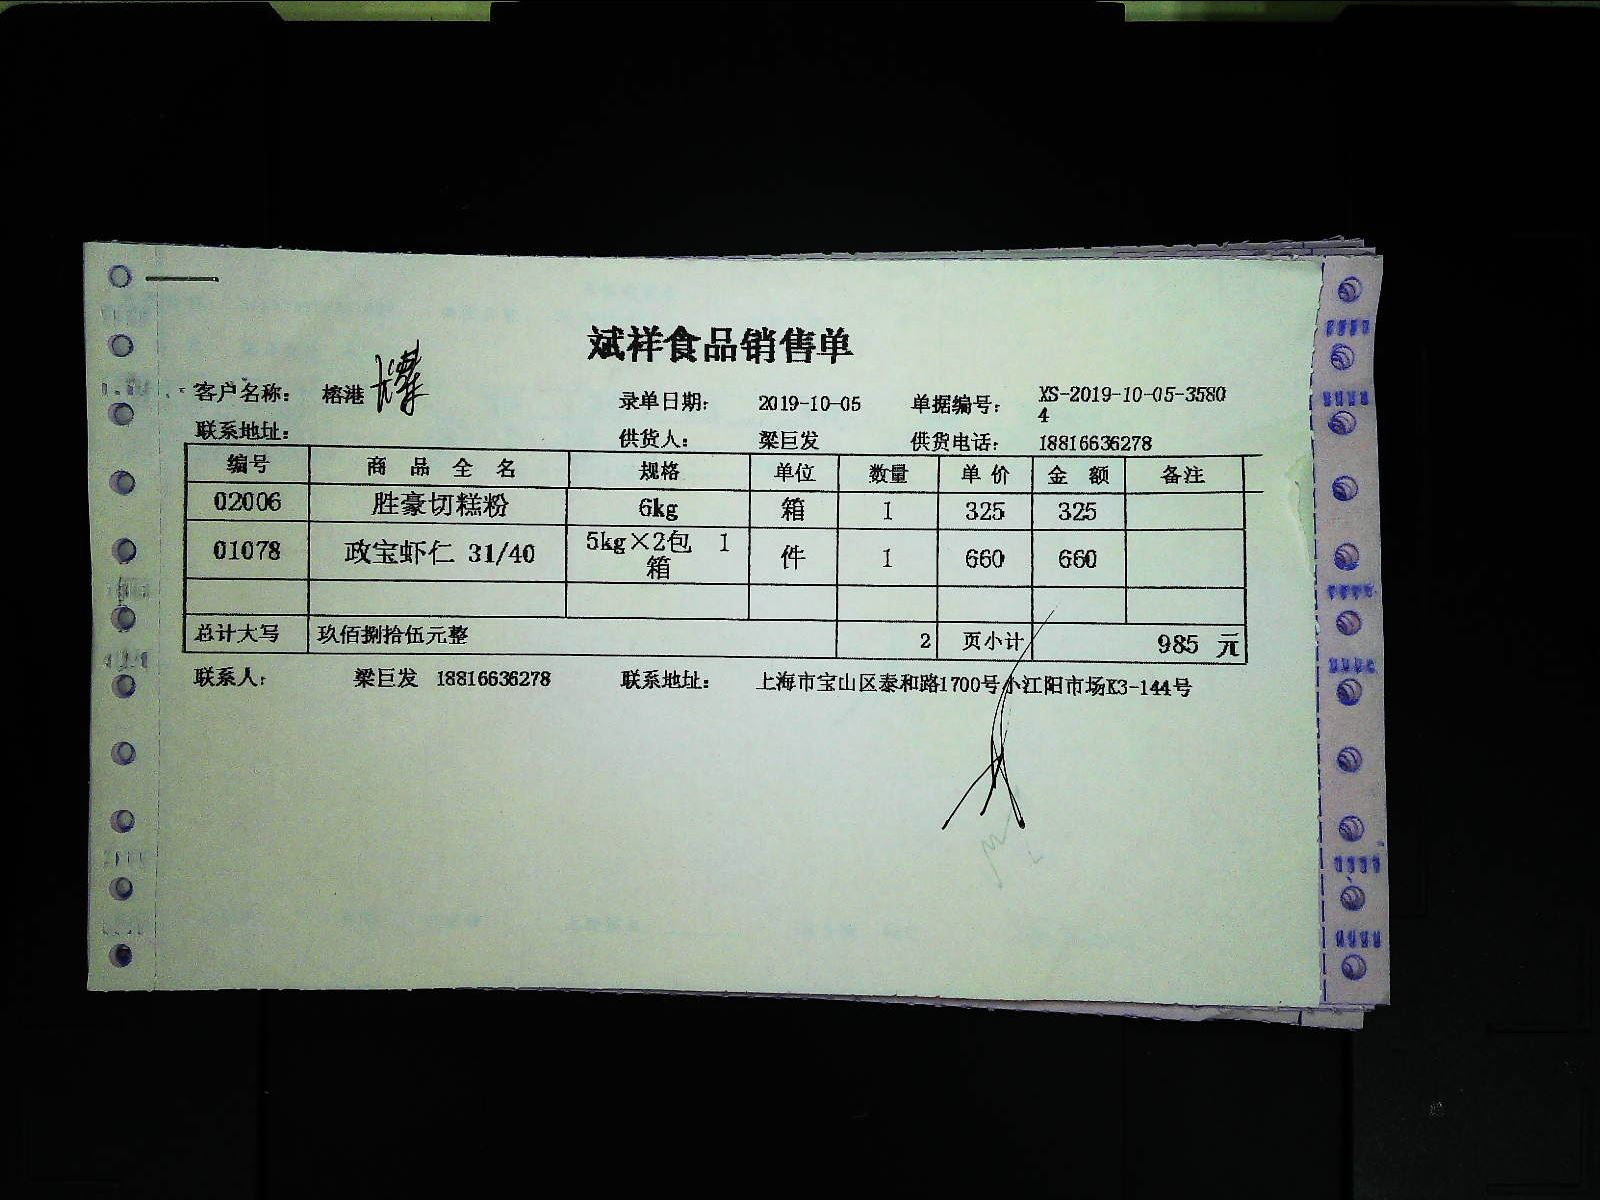 斌祥食品销售单
客户名称： 榕港 录单日期： 2019-10-05 单据编号： XS-2019-10-05-3580
4
联系地址： 供货人： 梁巨发 供货电话： 18816636278
编号 商品全名 规格 单位 数量 单价 金额 备注
02006 胜豪切糕粉 6kg 箱 1 325 325
01078 政宝虾仁 31/40 5kg×2包 1 件 1 660 660
箱
总计大写 玖佰捌拾伍元整 2 页小计 985 元
联系人： 梁巨发 18816636278 联系地址： 上海市宝山区泰和路1700号小江阳市场K3-144号